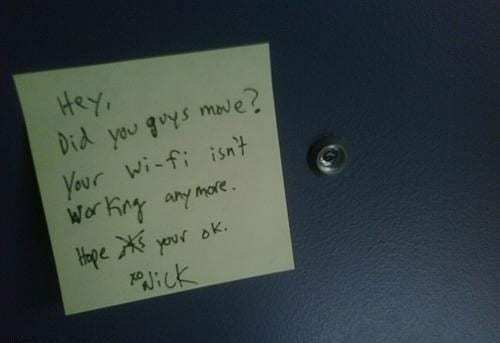 Hey,
Did you guys move?
Your wi-fi isn't
working anymore.
Hope your ok.
xo Nick